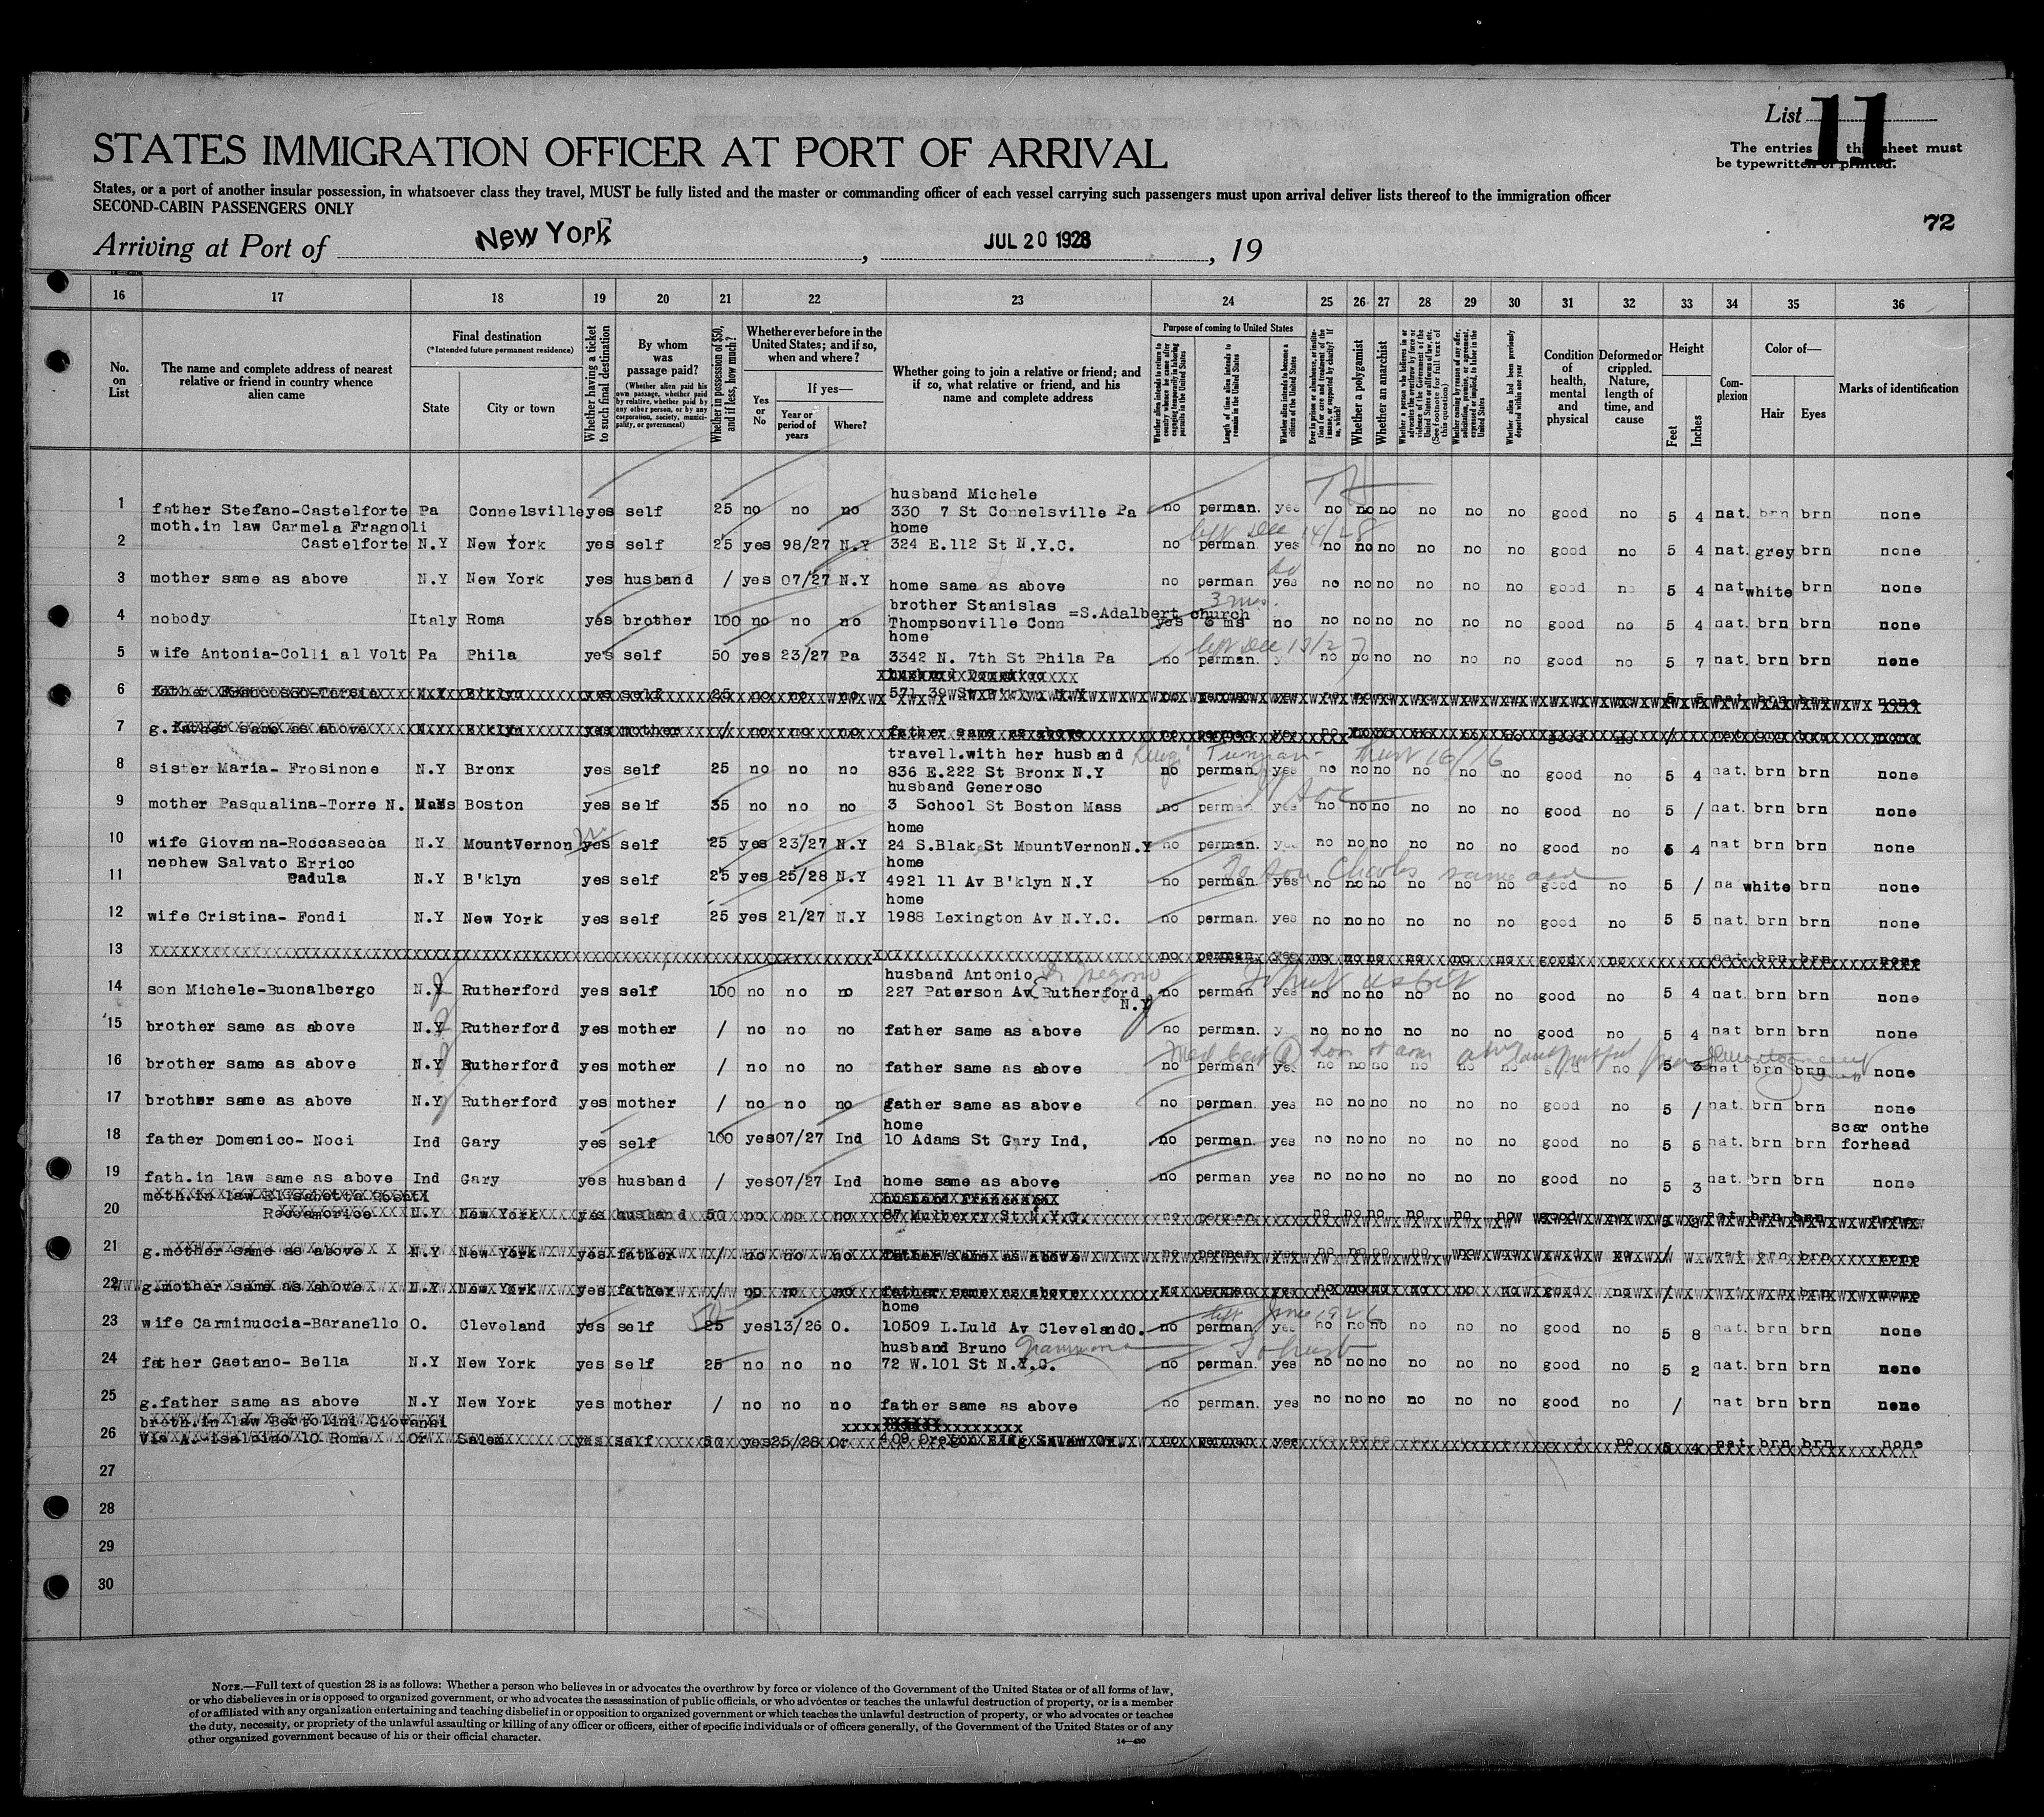 List 11
The entries on this sheet must
be typewritten or printed.
STATES IMMIGRATION OFFICER AT PORT OF ARRIVAL
States, or a port of another insular possession, in whatsoever class they travel, MUST be fully listed and the master or commanding officer of each vessel carrying such passengers must upon arrival deliver lists thereof to the immigration officer
SECOND-CABIN PASSENGERS ONLY
72
Arriving at Port of New York, JUL 20 1928, 19
16 17 18 19 20 21 22 23 24 25 26 27 28 29 30 31 32 33 34 35 36
No. on List
The name and complete address of nearest relative or friend in country whence alien came
Final destination
(*Intended future permanent residence)
State
City or town
Whether having a ticket to such final destination
By whom was passage paid?
(Whether alien paid his own passage, whether paid by relative, whether paid by any other person, or by any corporation, society, municipality, or government)
Whether in possession of $50, and if less, how much?
Whether ever before in the United States; and if so, when and where?
Yes or No
If yes—
Year or period of years
Where?
Whether going to join a relative or friend; and if so, what relative or friend, and his name and complete address
Purpose of coming to United States
Whether alien intends to return to country whence he came after engaging temporarily in laboring pursuits in the United States
Length of time alien intends to remain in the United States
Whether alien intends to become a citizen of the United States
Ever in prison or almshouse, or institution for care and treatment of the insane, or supported by charity? If so, which?
Whether a polygamist
Whether an anarchist
Whether a person who believes in or advocates the overthrow by force or violence of the Government of the United States or all forms of law, etc. (See footnote for full text of this question)
Whether coming by reason of any offer, solicitation, promise, or agreement, expressed or implied, to labor in the United States
Whether alien had been previously deported within one year
Condition of health, mental and physical
Deformed or crippled. Nature, length of time, and cause
Height
Feet
Inches
Complexion
Color of—
Hair
Eyes
Marks of identification
husband Michele
1 father Stefano-Castelforte Pa Connelsville yes self 25 no no no 330 7 St Connelsville Pa no perman. yes no no no no no no good no 5 4 nat. brn brn none
moth.in law Carmela Fragnoli home left Dec 14/28
2 Castelforte N.Y New York yes self 25 yes 98/27 N.Y 324 E.112 St N.Y.C. no perman yes no no no no no no good no 5 4 nat. grey brn none
3 mother same as above N.Y New York yes husband / yes 07/27 N.Y home same as above no perman. yes no no no no no no good no 5 4 nat white brn none
brother Stanislas =S.Adalbert church 3 mos.
4 nobody Italy Roma yes brother 100 no no no Thompsonville Conn yes 6 ms no no no no no no no good no 5 4 nat. brn brn none
home
5 wife Antonia-Colli al Volt Pa Phila yes self 50 yes 23/27 Pa 3342 N. 7th St Phila Pa no perman. no no no no no no good no 5 7 nat. brn brn none
6 N.Y B'klyn yes self 25 no no no 571 39 St B'klyn N.Y no perman yes none
7 g.father same as above N.Y B'klyn yes mother / no no no father same as above no perman none
travell.with her husband
8 sister Maria- Frosinone N.Y Bronx yes self 25 no no no 836 E.222 St Bronx N.Y no perman. yes no no no no no no good no 5 4 nat. brn brn none
husband Generoso
9 mother Pasqualina-Torre N. Mass Boston yes self 35 no no no 3 School St Boston Mass no perman yes no no no no no no good no 5 / nat. brn brn none
home
10 wife Giovanna-Roccasecca N.Y MountVernon yes self 25 yes 23/27 N.Y 24 S.Blak St MountVernonN.Y no perman. no no no no no no good no 5 4 nat brn brn none
nephew Salvato Errico home To son Charles same add
11 Padula N.Y B'klyn yes self 25 yes 25/28 N.Y 4921 11 Av B'klyn N.Y no perman. yes no no no no no no good no 5 / na white brn none
home
12 wife Cristina- Fondi N.Y New York yes self 25 yes 21/27 N.Y 1988 Lexington Av N.Y.C. no perman. yes no no no no no no good no 5 5 nat. brn brn none
13 no perman. yes no no no no no no good no nat. brn brn none
husband Antonio
14 son Michele-Buonalbergo N.Y Rutherford yes self 100 no no no 227 Paterson Av Rutherford N.Y no perman yes no no no no no no good no 5 4 nat. brn brn none
15 brother same as above N.Y Rutherford yes mother / no no no father same as above no perman. y no no no no no no good no 5 4 nat brn brn none
16 brother same as above N.Y Rutherford yes mother / no no no father same as above no perman yes no no no no no no no 5 3 nat brn brn none
17 brother same as above N.Y Rutherford yes mother / no no no father same as above no perman yes no no no no no no good no 5 / nat. brn brn none
home scar onthe
18 father Domenico- Noci Ind Gary yes self 100 yes 07/27 Ind 10 Adams St Gary Ind, no perman. yes no no no no no no good no 5 5 nat. brn brn forhead
19 fath.in law same as above Ind Gary yes husband / yes 07/27 Ind home same as above no perman yes no no no no no no good no 5 3 nat. brn brn none
moth.in law Elisabetta husband Francesco
20 Roccamorice N.Y New York yes husband 50 no no no 87 Mulberry St N.Y.C. no perman no no no no no no good
21 g.mother same as above N.Y New York yes father / no no no father same as above no perman yes
22 g.mother same as above N.Y New York yes father / no no no father same as above no perman yes no no no no no no good no / none
home left June 1926
23 wife Carminuccia-Baranello O. Cleveland yes self 25 yes 13/26 O. 10509 L.Luld Av Cleveland O. no perman yes no no no no no no good no 5 8 nat. brn brn none
husband Bruno To husb
24 father Gaetano- Bella N.Y New York yes self 25 no no no 72 W.101 St N.Y.C. no perman. yes no no no no no no good no 5 2 nat. brn brn none
25 g.father same as above N.Y New York yes mother / no no no father same as above no perman. yes no no no no no no good no / nat brn brn none
broth.in law Bertolini Giovanni
26 Roma Or Salem yes self 50 yes 25/28 Or 409 Oregon Bldg Salem Or. no perman yes no 5 4 nat. brn brn none
27
28
29
30
NOTE.—Full text of question 28 is as follows: Whether a person who believes in or advocates the overthrow by force or violence of the Government of the United States or of all forms of law,
or who disbelieves in or is opposed to organized government, or who advocates the assassination of public officials, or who advocates or teaches the unlawful destruction of property, or is a member
of or affiliated with any organization entertaining and teaching disbelief in or opposition to organized government or which teaches the unlawful destruction of property, or who advocates or teaches
the duty, necessity, or propriety of the unlawful assaulting or killing of any officer or officers, either of specific individuals or of officers generally, of the Government of the United States or of any
other organized government because of his or their official character.
14—430